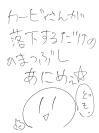 カービィさんが
落下するだけの
ひまつぶし
あにめっ☆
ともっ